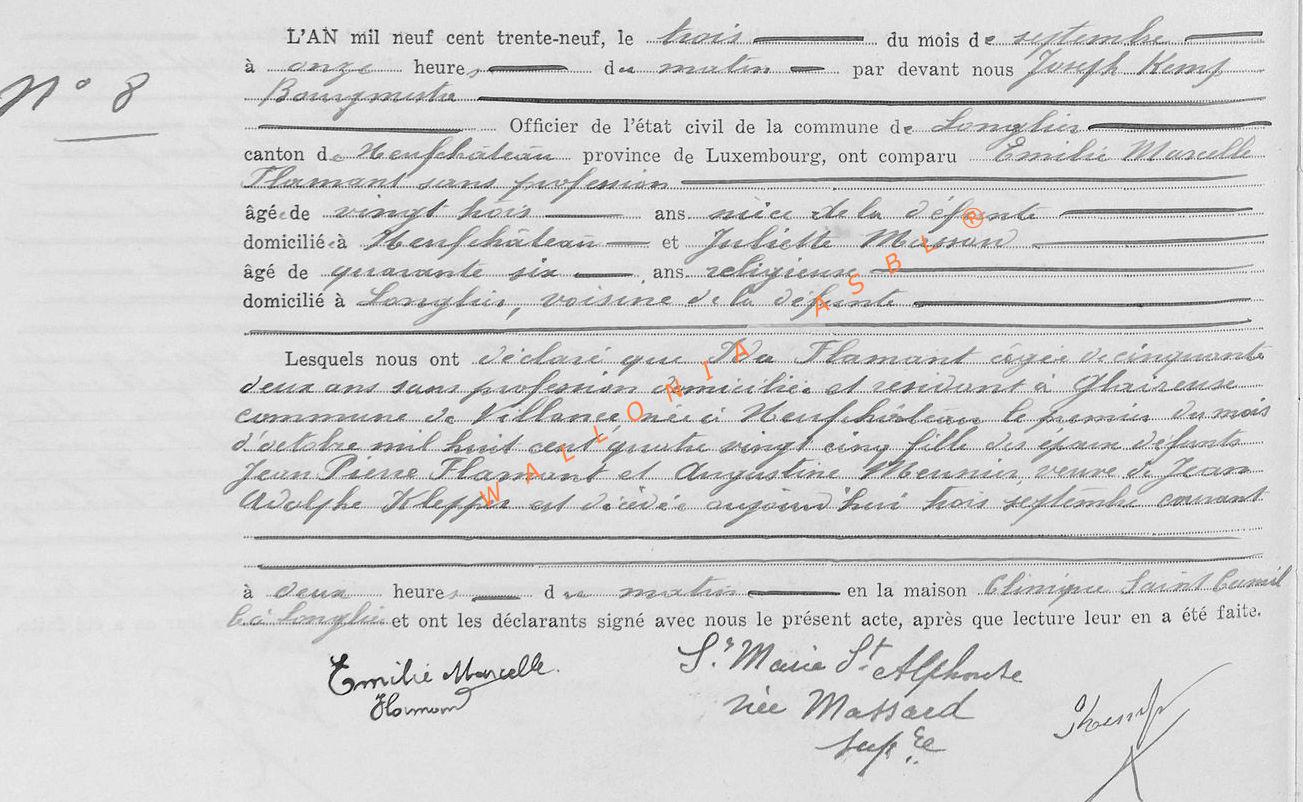 L'AN mil neuf cent trente-neuf, le trois du mois de septembre
à onze heures du matin par devant nous Joseph Kemp
N° 8
Bourgmestre
Officier de l'état civil de la commune de Longlier
canton de Neufchâteau province de Luxembourg, ont comparu Emilie Marcelle
Flamant sans profession
âgée de vingt trois ans nièce de la défunte
domiciliée à Neufchâteau et Juliette
âgé de quarante six ans religieuse
domicilié à Longlier, voisine de la défunte
Lesquels nous ont déclaré que Ida Flamant âgée de cinquante
deux ans sans profession domiciliée et résidant à Glaireuse
commune de Villance née à Neufchâteau le premier du mois
d'octobre mil huit cent quatre vingt cinq fille des époux défunts
Jean Pierre Flamant et Augustine Meunier veuve de Jean
Adolphe Klepper est décédée aujourd'hui trois septembre courant
à deux heures du matin en la maison Clinique Saint
à Longlier et ont les déclarants signé avec nous le présent acte, après que lecture leur en a été faite.
Emilie Marcelle
Flamant
Sr Marie St Alphonse
née Massard
Supre
JKemp
WALLONIA ASBL ®